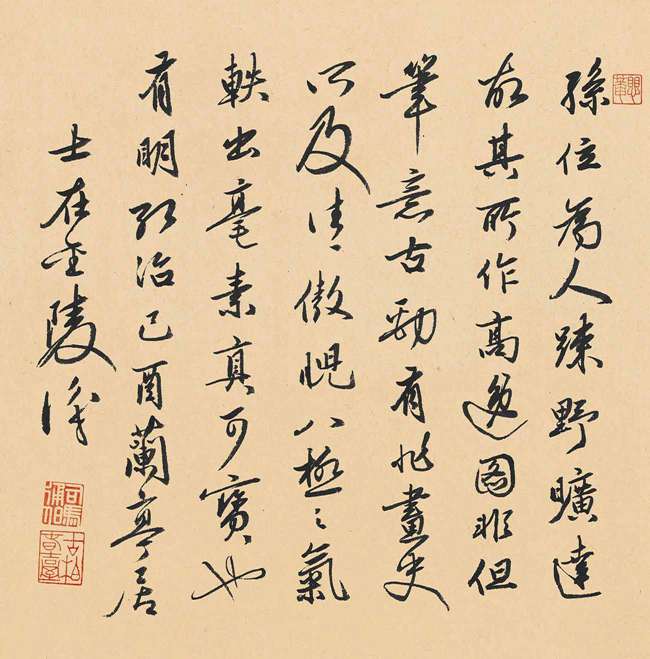 孫位為人疎野曠達
故其所作高逸圖非但
筆意古勁有非畫史
所及往往傲睨八極之氣
軼出毫素真可寶也
有明弘治己酉蘭亭居
士在金陵識